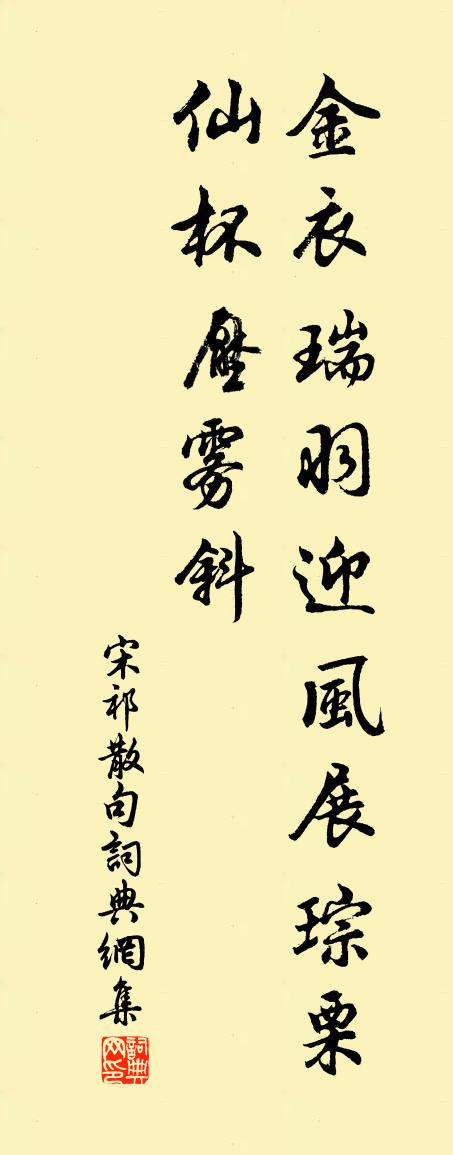 金衣瑞羽迎風展琮栗
仙杯壓霧斜
宋祁散句詞典網集
詞典网印